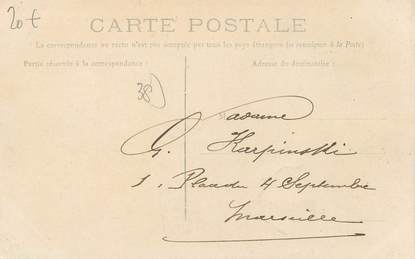 20 €
CARTE POSTALE
La correspondance au recto n'est pas acceptée par tous les pays étrangers (se renseigner à la Poste)
Partie réservée à la correspondance :
Adresse du destinataire :
38
Madame
G. Karpinski
1, Place du 4 Septembre
Marseille